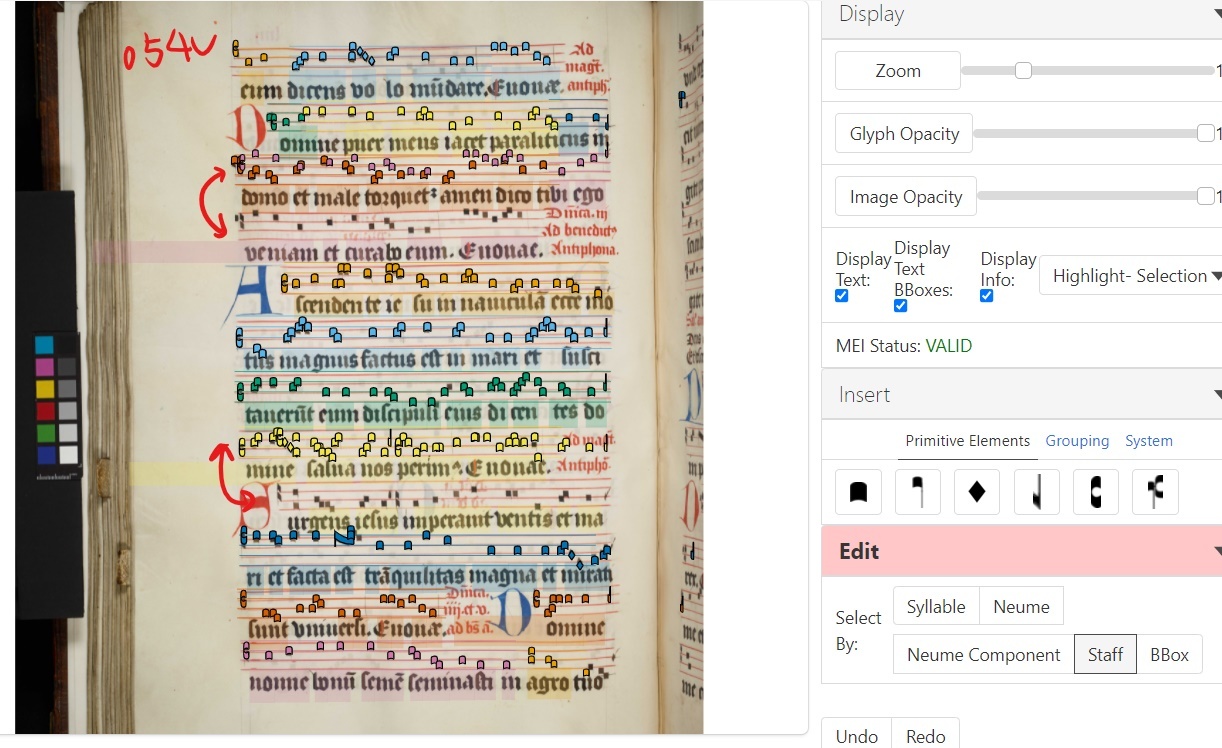 054v
Ad
magt.
cum dicens vo lo mūdare. Euouae. antiph.
Domine puer meus iacet paraliticus in
domo et male torquet: amen dico tibi ego
Dmica. iii
Ad benedict
veniam et curabo eum. Euouae. Antiphona.
Ascendente ie su in nauiculā ecce mo
tus magnus factus est in mari et susci
tauerūt eum discipuli eius di cen tes do
Ad magt.
mine salua nos perim Euouae. Antipho.
Surgens iesus imperauit ventis et ma
ri et facta est trāquilitas magna et mirati
Dmica.
iiij. et v.
sunt vniuersi. Euouae. ad bs ā. Domine
nonne bonū semē seminasti in agro tuo
Display
Zoom
1
Glyph Opacity
1
Image Opacity
1
Display Text:
Display Text BBoxes:
Display Info:
Highlight- Selection
MEI Status: VALID
Insert
Primitive Elements Grouping System
Edit
Select By:
Syllable Neume
Neume Component Staff BBox
Undo Redo